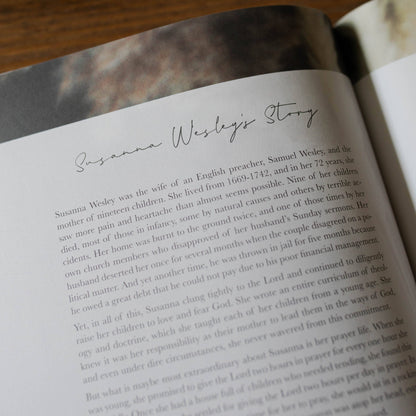 Susanna Wesley's Story
Susanna Wesley was the wife of an English preacher, Samuel Wesley, and the
mother of nineteen children. She lived from 1669-1742, and in her 72 years, she
saw more pain and heartache than almost seems possible. Nine of her children
died, most of those in infancy, some by natural causes and others by terrible ac-
cidents. Her home was burnt to the ground twice, and one of those times by her
own church members who disapproved of her husband's Sunday sermons. Her
husband deserted her once for several months when the couple disagreed on a po-
litical matter. And yet another time, he was thrown in jail for five months because
he owed a great debt that he could not pay due to his poor financial management.
Yet, in all of this, Susanna clung tightly to the Lord and continued to diligently
raise her children to love and fear God. She wrote an entire curriculum of theol-
ogy and doctrine, which she taught each of her children from a young age. She
knew it was her responsibility as their mother to lead them in the ways of God,
and even under dire circumstances, she never wavered from this commitment.
But what is maybe most extraordinary about Susanna is her prayer life. When she
was young, she promised to give the Lord two hours in prayer for every one hour she
Once she had a house full of children who needed tending, she found this
settled for giving the Lord two hours per day in prayer,
to pray, she would sit in a rocking